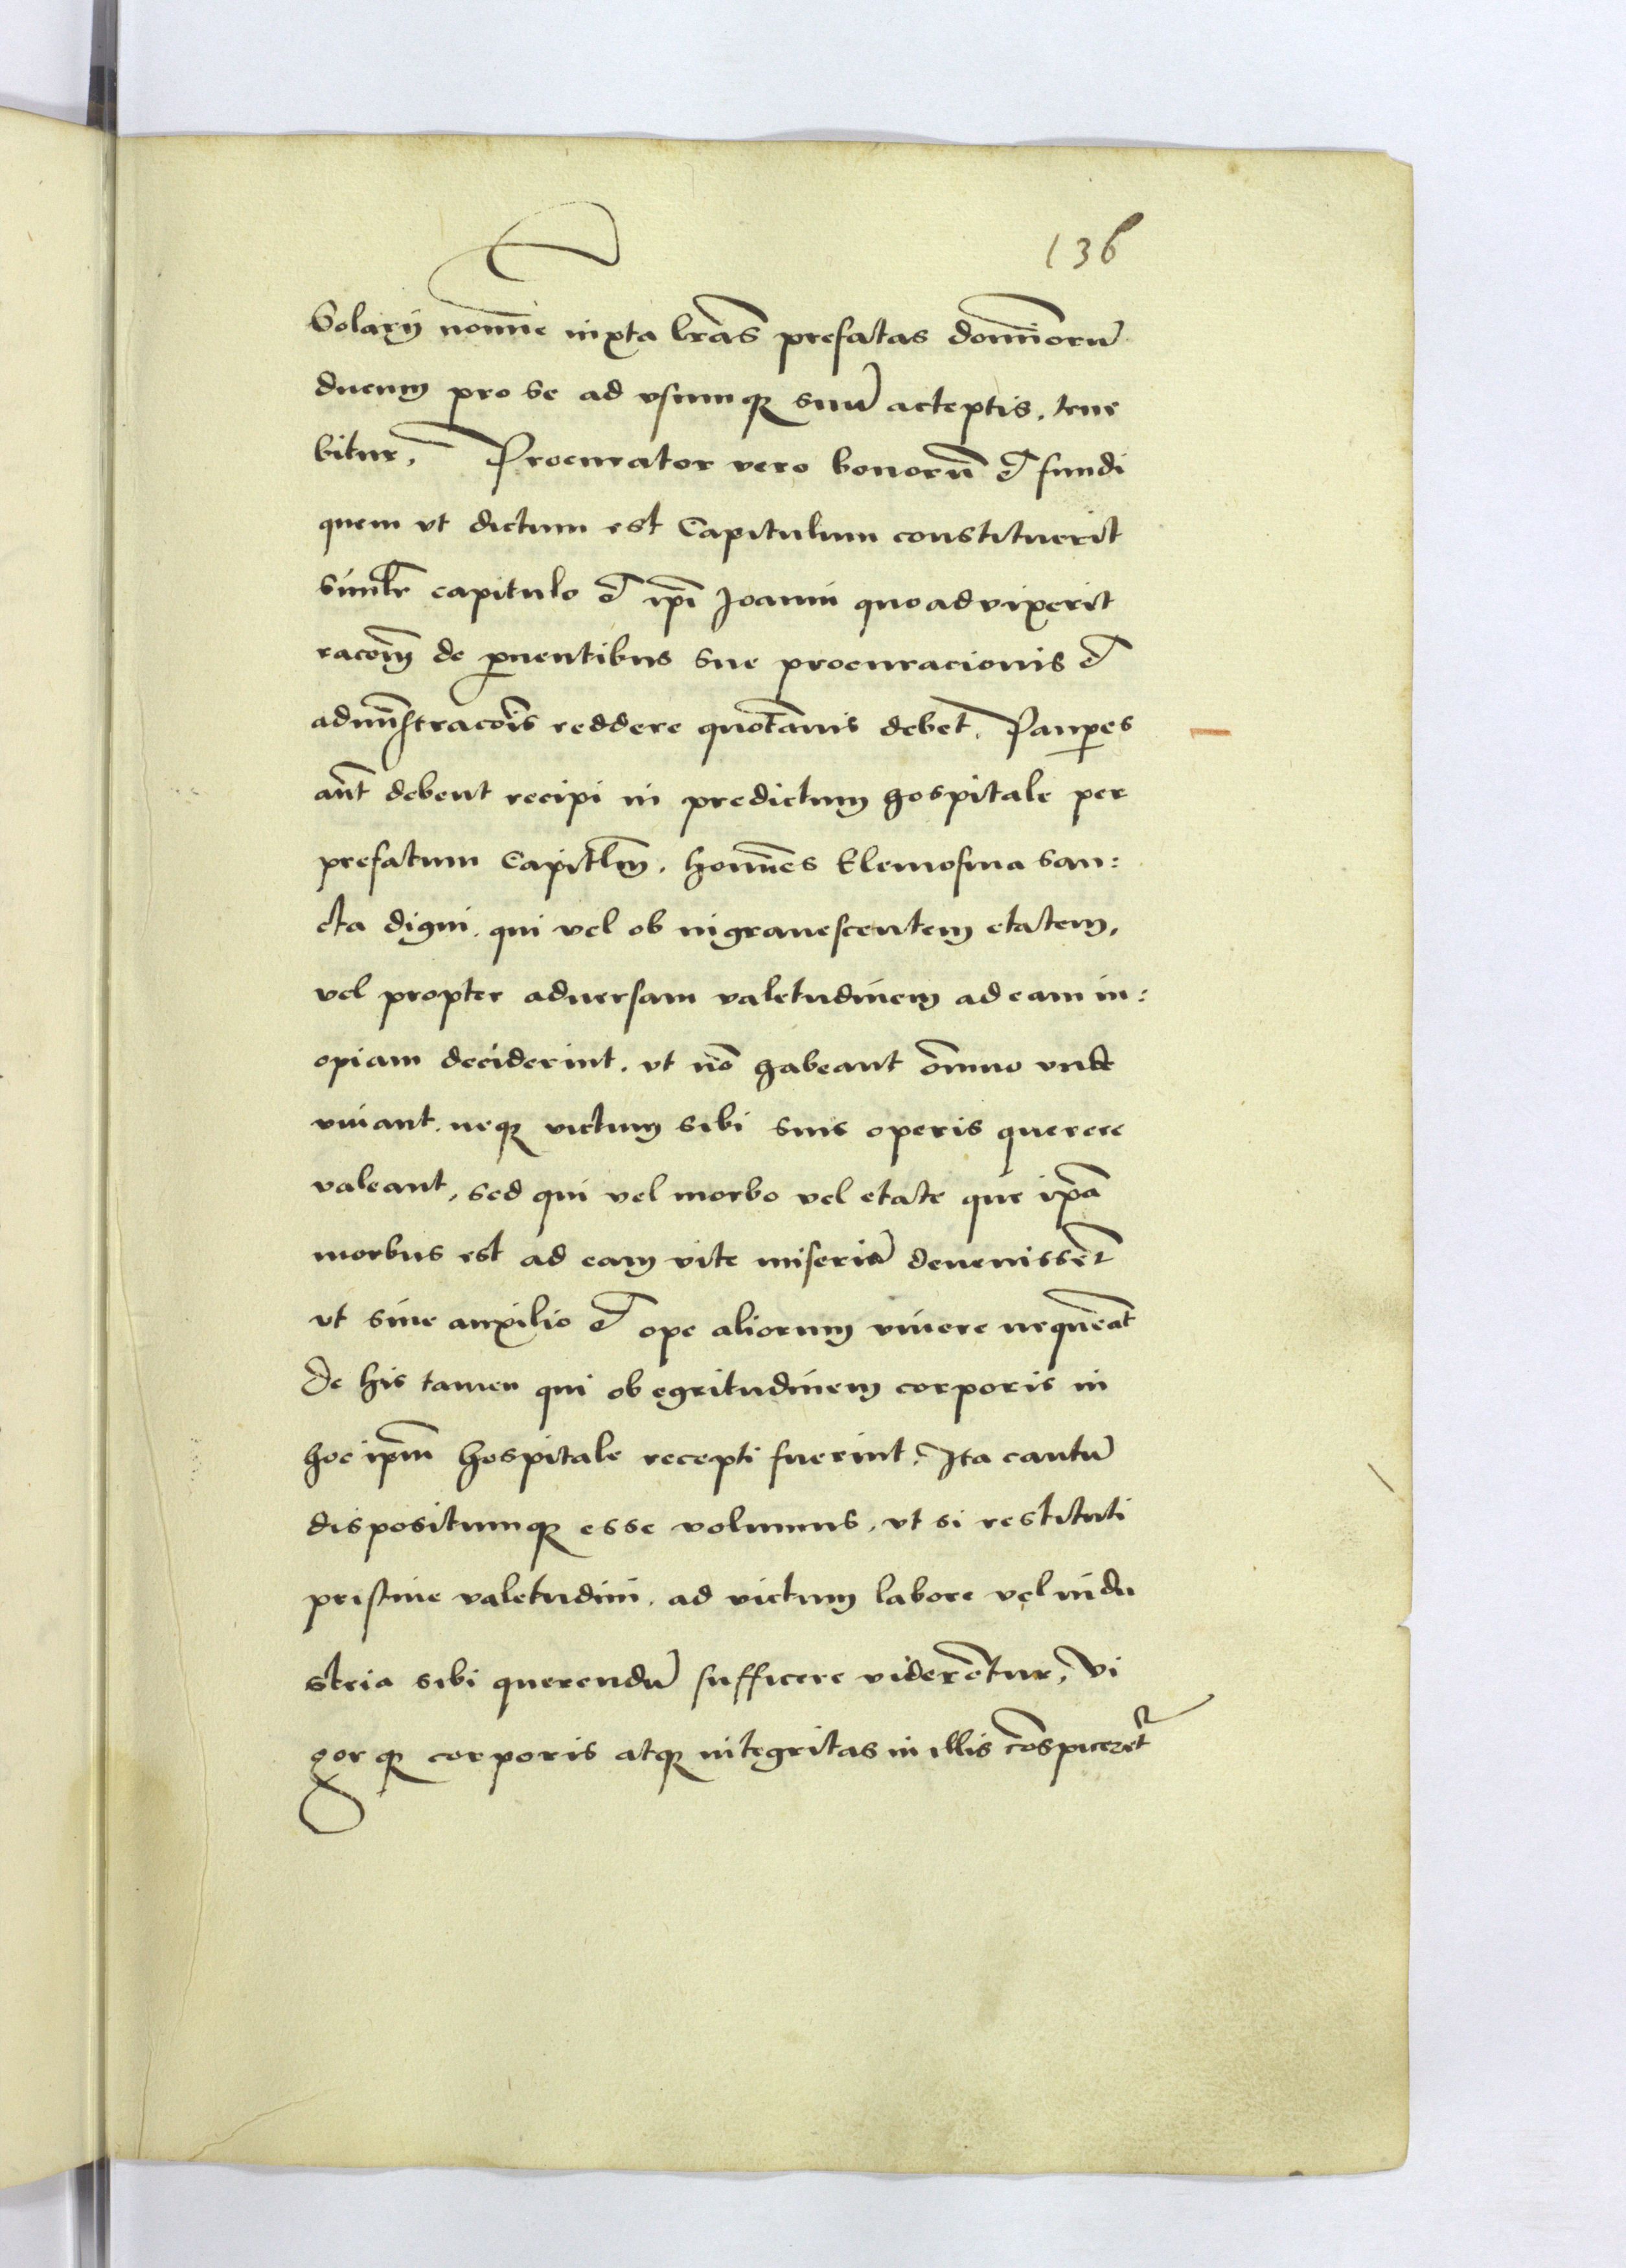 136
Solarij nomīe iuxta lr̄as prefatas domīorū
ducum pro se ad vsumqꝫ suū acceptis, tene
bitur, Procurator vero bonorū et fundi
quem vt dictum est Capitulum constituerit
simlr̄ capitulo et ip̄i Joanni quoad vixerit
racōm̄ de ꝓuentibus sue procuracionis et
admn̄istracōis reddere quotānis debet, Pauꝑes
aūt debent recipi in predictum hospitale per
prefatum Capitlm̄, homīes Elemosina san:
cta digni, qui vel ob ingrauescentem etatem,
vel propter aduersam valetudinem ad eam in:
opiam deciderint, vt nō habeant om̄ino vnde
viuant, neqꝫ victum sibi suis operis querere
valeant, sed qui vel morbo vel etate que ip̄a
morbus est ad eam vite miseriā deuenissēt
vt sine auxilio et ope aliorum viuere nequeāt
De his tamen qui ob egritudinem corporis in
hoc ip̄m hospitale recepti fuerint, Ita cautū
dispositumqꝫ esse volumus, vt si restituti
pristine valetudini, ad victum labore vel indu
stria sibi querendū sufficere viderētur, Vi
gor qꝫ corporis atqꝫ integritas in illis cōspiceret᷑